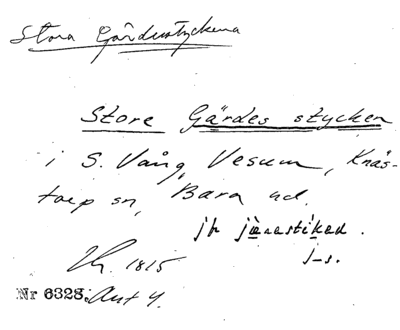 Stora Gärdesstyckena
Store Gärdes stycken
i S. Vång, Vesum, Knäs-
torp sn, Bara hd.
jfr
1815
Nr 6328. Akt 4.